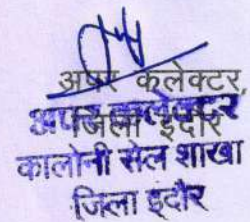 अपर कलेक्टर,
जिला इंदौर
अपर कलेक्टर
कालोनी सेल शाखा
जिला इन्दौर